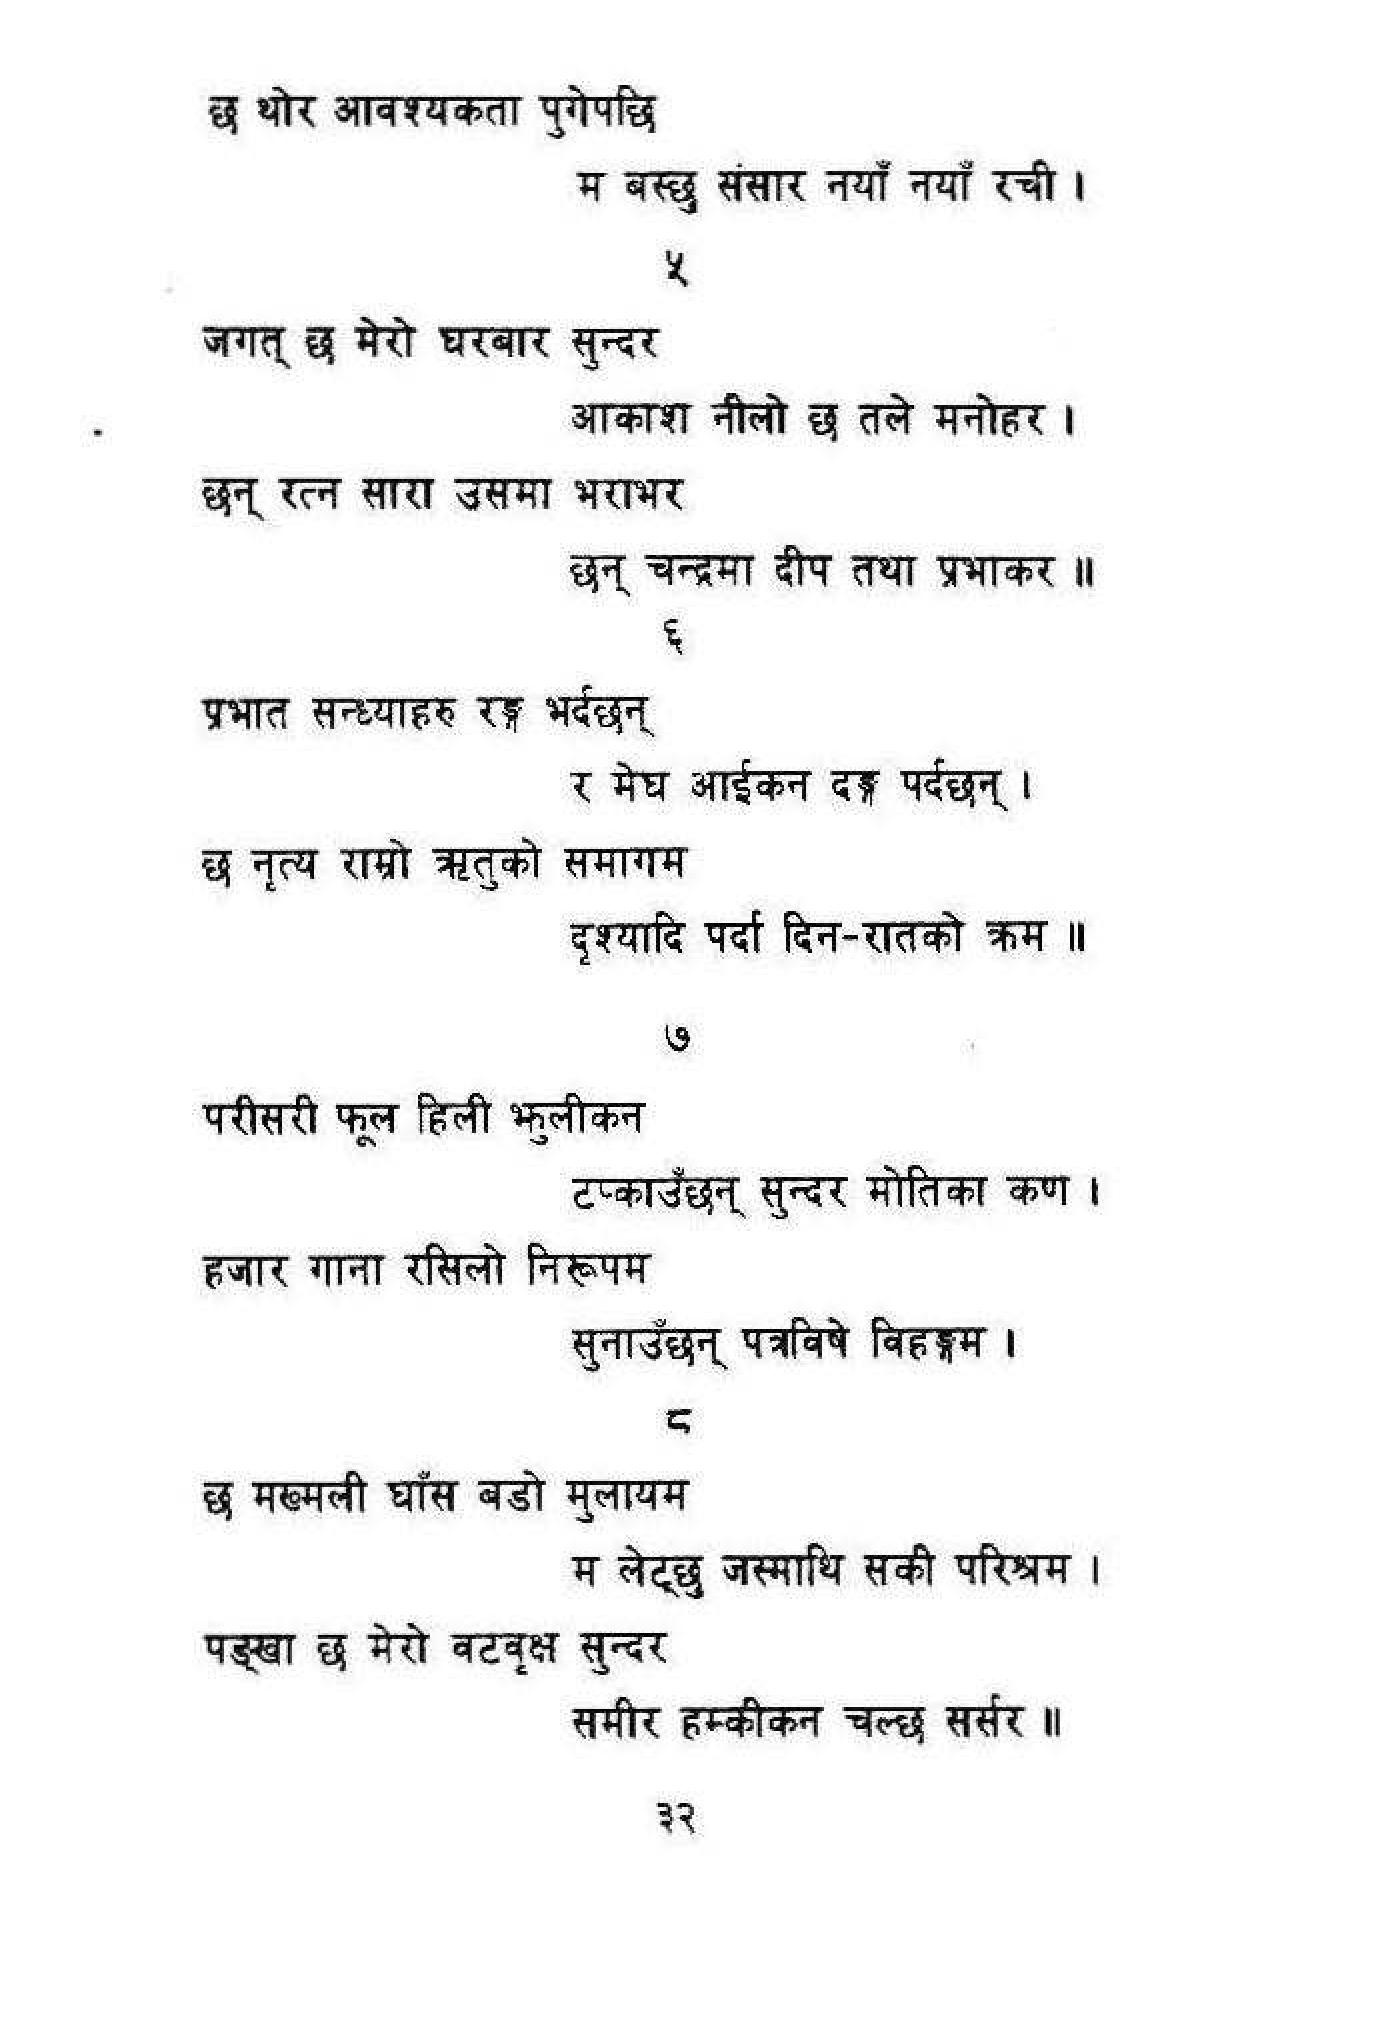 छ थोर आवश्यकता पुगेपछि
म बस्छु संसार नयाँ नयाँ रची ।
५
जगत् छ मेरो घरबार सुन्दर
आकाश नीलो छ तले मनोहर ।
छन् रत्न सारा उसमा भराभर
छन् चन्द्रमा दीप तथा प्रभाकर ॥
६
प्रभात सन्ध्याहरु रङ्ग भर्दछन्
र मेघ आईकन दङ्ग पर्दछन् ।
छ नृत्य राम्रो ऋतुको समागम
दृश्यादि पर्दा दिन-रातको क्रम ॥
७
परीसरी फूल हिली झुलीकन
टप्काउँछन् सुन्दर मोतिका कण ।
हजार गाना रसिलो निरूपम
सुनाउँछन् पत्रविषे विहङ्गम ।
८
छ मख्मली घाँस बडो मुलायम
म लेट्छु जस्माथि सकी परिश्रम ।
पङ्खा छ मेरो वटवृक्ष सुन्दर
समीर हम्कीकन चल्छ सर्सर ॥
३२